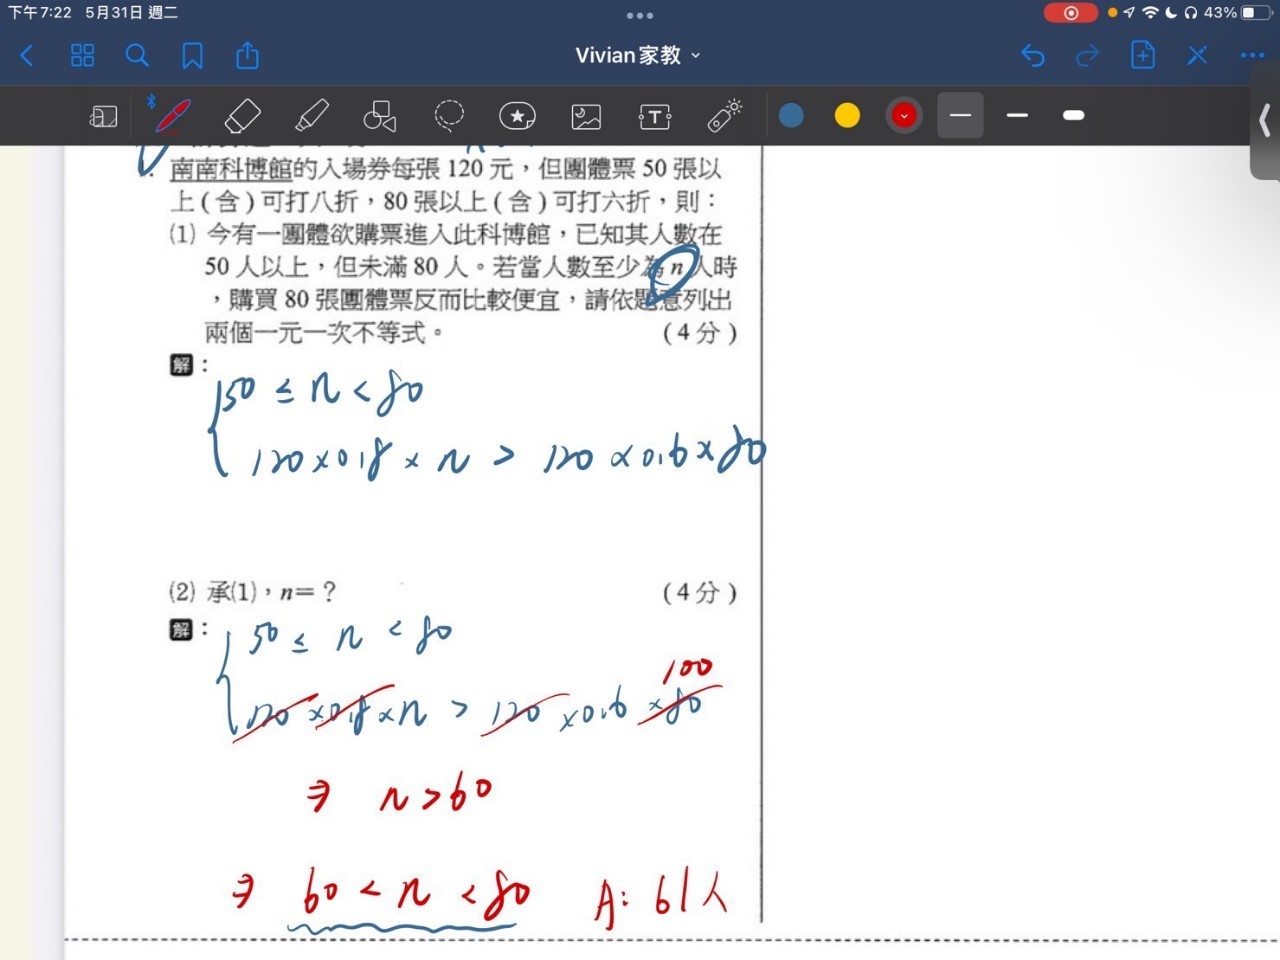 下午7:22 5月31日 週二
43%
Vivian家教
南南科博館的入場券每張 120 元，但團體票 50 張以
上(含)可打八折，80 張以上(含)可打六折，則：
(1) 今有一團體欲購票進入此科博館，已知其人數在
50 人以上，但未滿 80 人。若當人數至少為 n 人時
，購買 80 張團體票反而比較便宜，請依題意列出
兩個一元一次不等式。 (4分)
解：
50 ≤ n < 80
120×0.8×n > 120×0.6×80
(2) 承(1)，n=？ (4分)
解：
50 ≤ n < 80
100
120×0.8×n > 120×0.6×80
⇒ n>60
⇒ 60<n<80 A: 61人